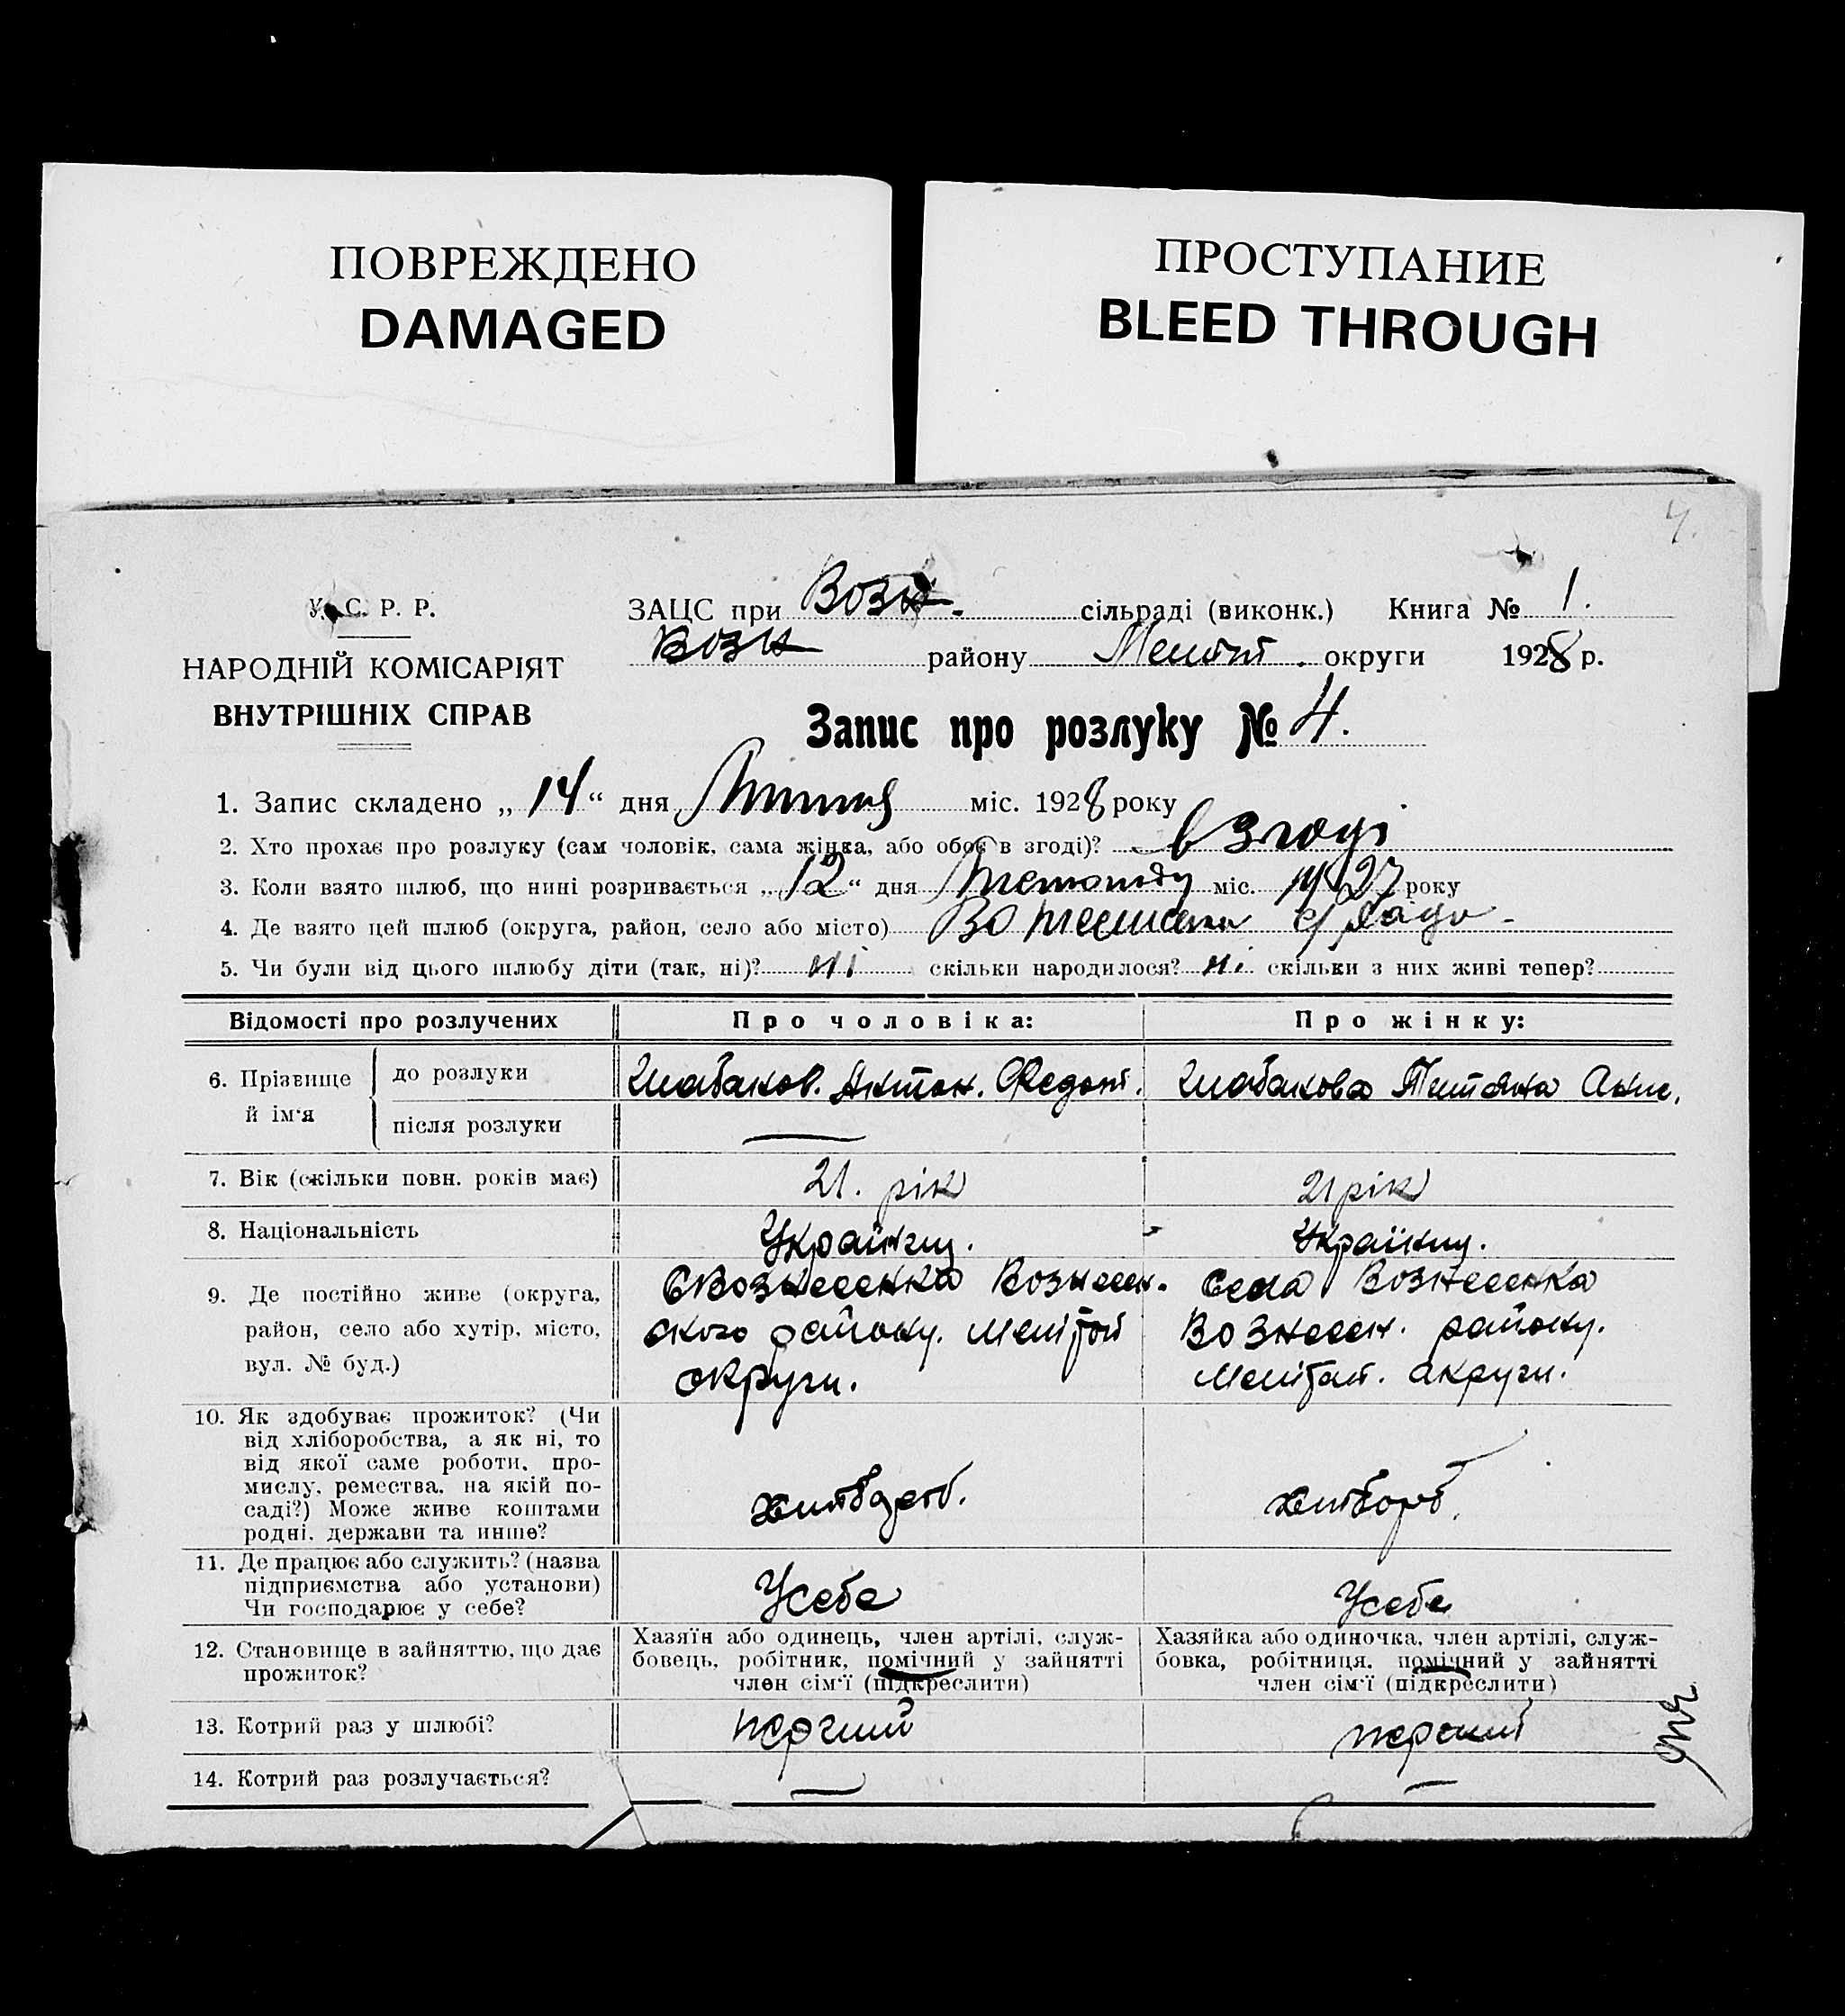 ПОВРЕЖДЕНО
DAMAGED
ПРОСТУПАНИЕ
BLEED THROUGH
4.
У. С. Р. Р.
НАРОДНІЙ КОМІСАРІЯТ
ВНУТРІШНІХ СПРАВ
ЗАЦС при Возн. сільраді (виконк.) Книга № 1.
Возн району Меліт. округи 1928 р.
Запис про розлуку № 4.
1. Запис складено „14“ дня міс. 1928 року
2. Хто прохає про розлуку (сам чоловік, сама жінка, або обоє в згоді)? в згоді
3. Коли взято шлюб, що нині розривається „12“ дня міс. 1927 року
4. Де взято цей шлюб (округа, район, село або місто)
5. Чи були від цього шлюбу діти (так, ні)? ні скільки народилося? ні скільки з них живі тепер?
Відомості про розлучених
Про чоловіка:
Про жінку:
6. Прізвище й ім'я
до розлуки
Шабанов. Антон. Федот.
Шабанова Титяна
після розлуки
7. Вік (скільки повн. років має)
21. рік
21 рік
8. Національність
Українц.
Українц.
9. Де постійно живе (округа,
район, село або хутір, місто,
вул. № буд.)
СВознесенка Вознесен.
ского району. Меліт
округи.
Села Вознесенка
Вознесен. району.
Меліт. округи.
10. Як здобуває прожиток? (Чи
від хліборобства, а як ні, то
від якої саме роботи, про-
мислу, ремества, на якій по-
саді?) Може живе коштами
родні, держави та инше?
11. Де працює або служить? (назва
підприємства або установи)
Чи господарює у себе?
Усебе
Усебе
12. Становище в зайняттю, що дає
прожиток?
Хазяїн або одинець, член артілі, служ-
бовець, робітник, помічний у зайнятті
член сім'ї (підкреслити)
Хазяйка або одиночка, член артілі, служ-
бовка, робітниця, помічний у зайнятті
член сім'ї (підкреслити)
13. Котрий раз у шлюбі?
перший
перший
14. Котрий раз розлучається?